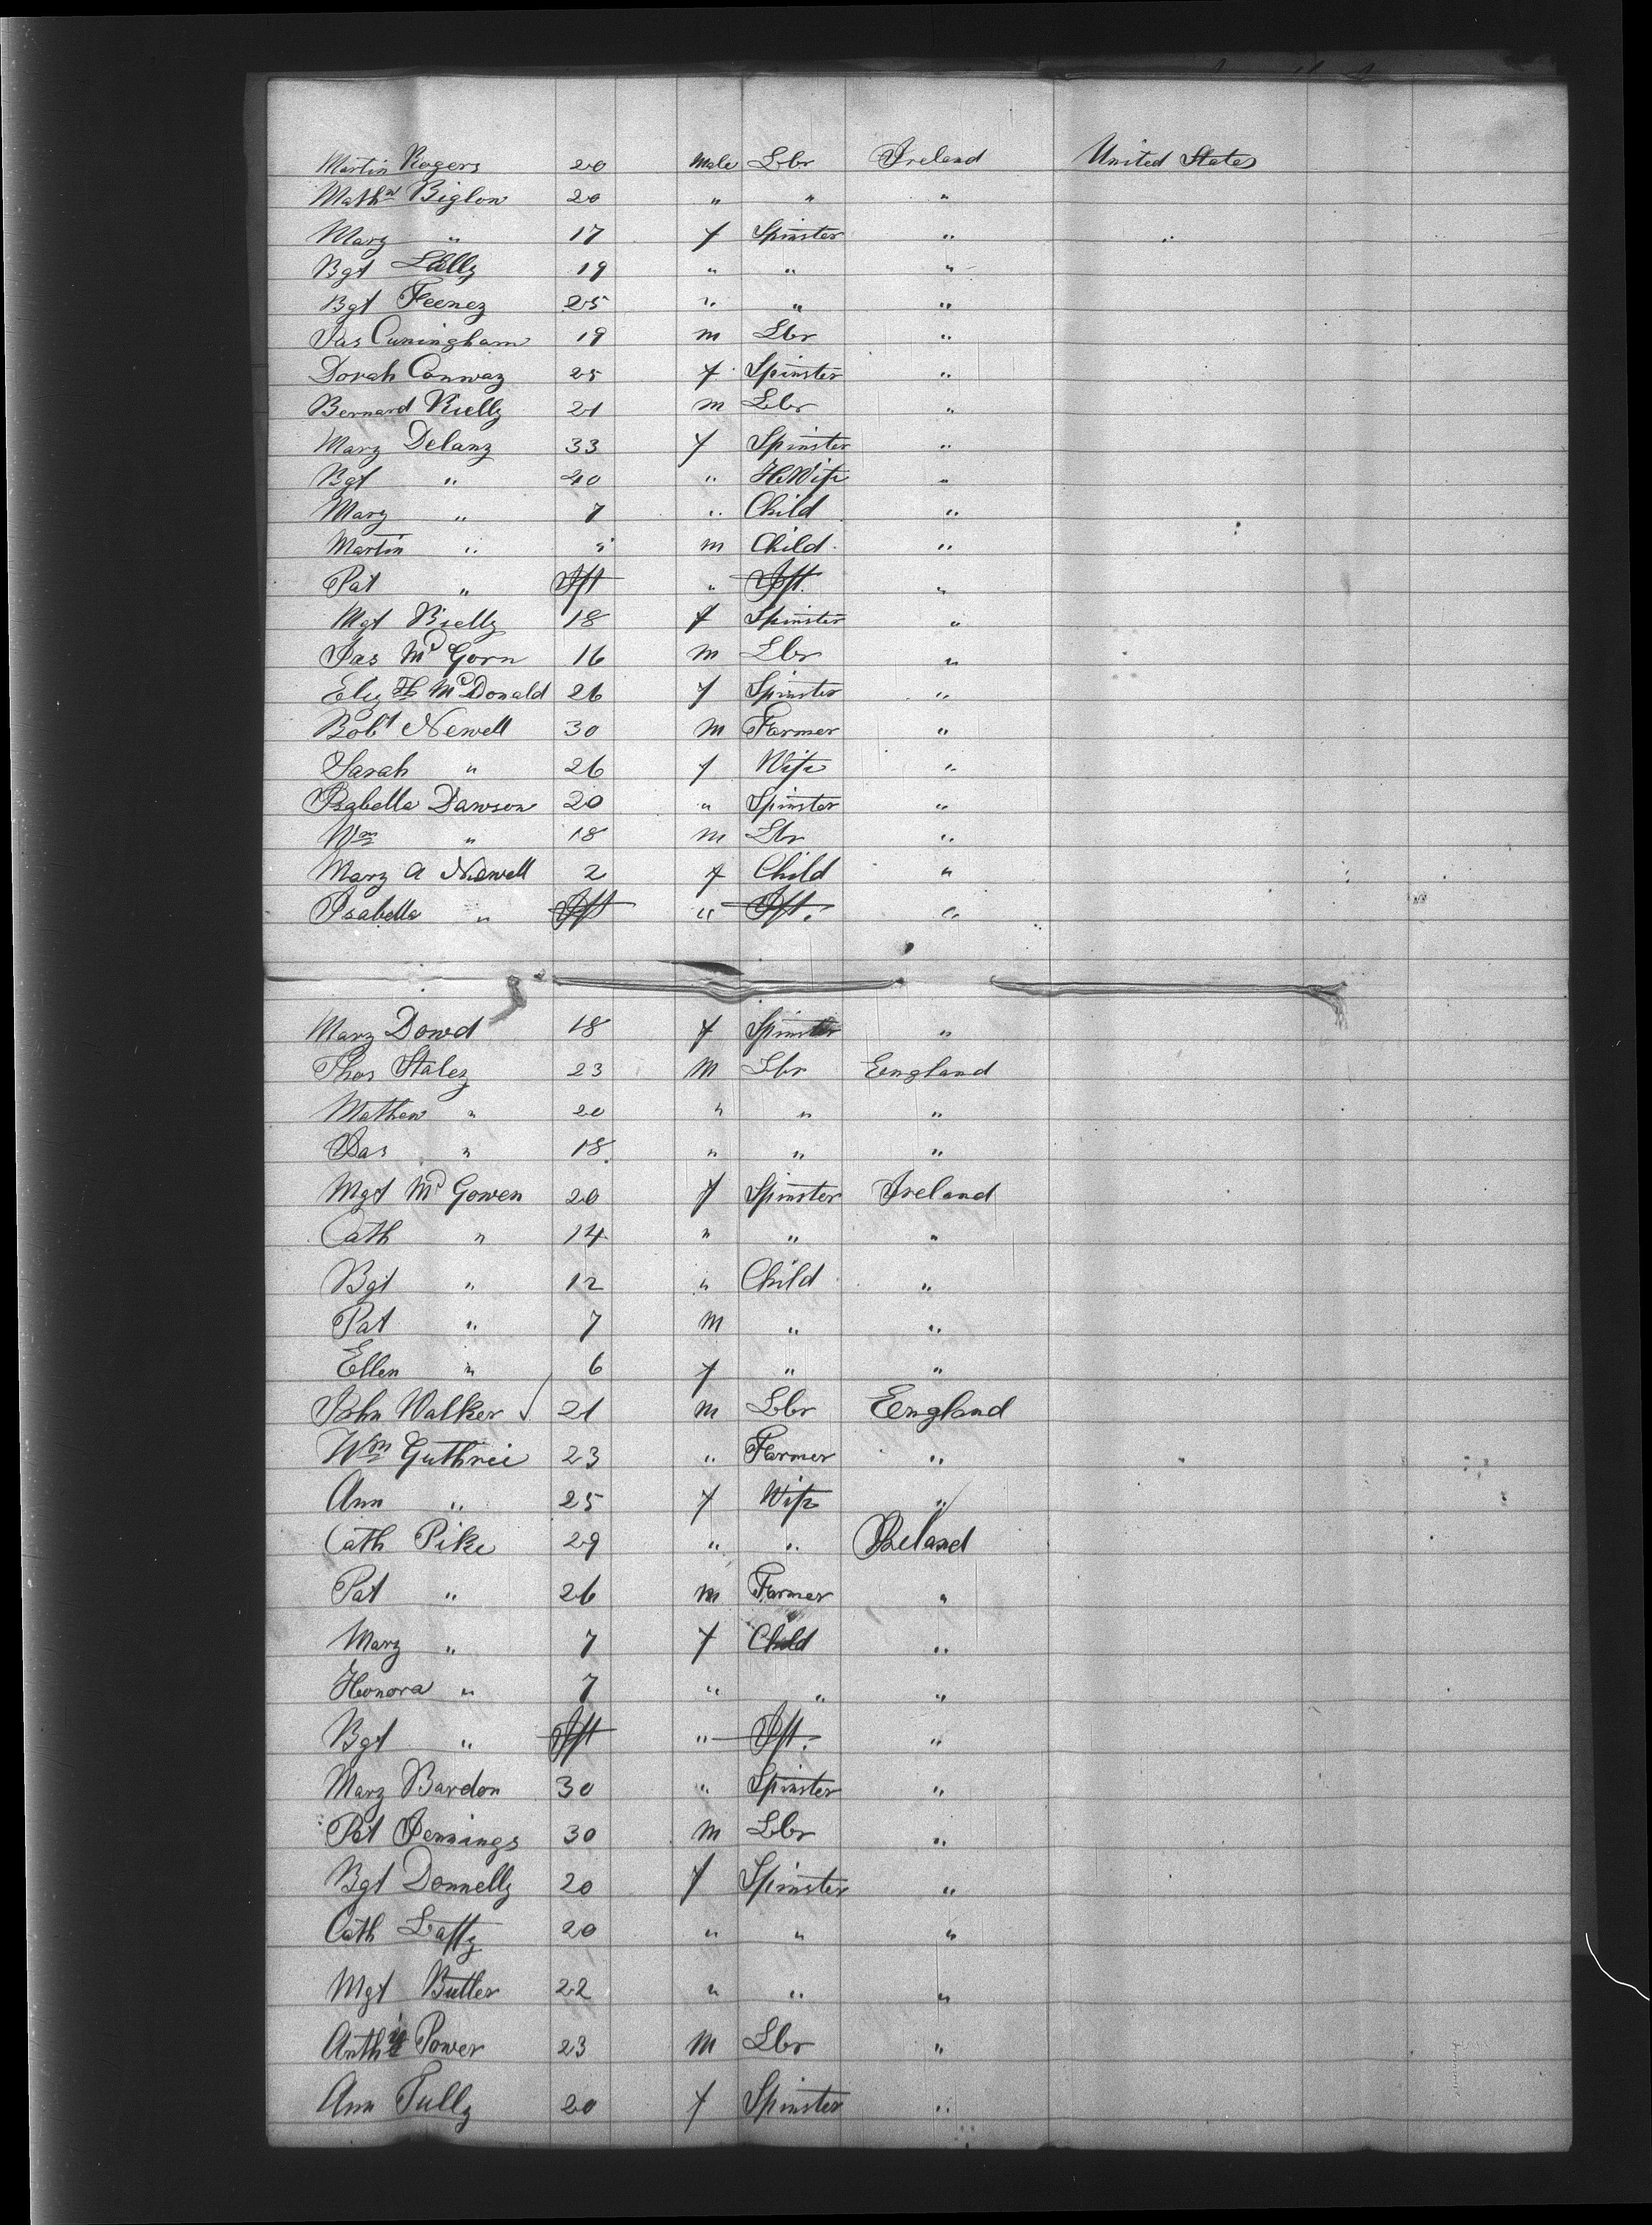 Martin Rogers 20 Male Lbr Ireland United States
Mathw Biglon 20 " " "
Mary " 17 f Spinster " "
Bgt Lally 19 " " "
Bgt Feeney 25 " " "
Jas Cuningham 19 m Lbr "
Dorah Conway 25 f Spinster "
Bernard Rielly 21 m Lbr "
Mary Delany 33 f Spinster "
Bgt " 40 " H.Wife "
Mary " 7 " Child "
Martin " " m Child "
Pat " Ift " Ift. "
Mgt Rielly 18 f Spinster "
Jas Mc Gorn 16 m Lbr "
Eliz th McDonald 26 f Spinster "
Robt Newell 30 m Farmer "
Sarah " 26 f Wife "
Isabella Dawson 20 " Spinster "
Wm " 18 m Lbr "
Mary A Newell 2 f Child "
Isabella " Ift " Ift. "
Mary Dowd 18 f Spinster "
Thos Staley 23 m Lbr England
Mathew " 20 " " "
Jas " 18 " " "
Mgt Mc Gowen 20 f Spinster Ireland
Cath " 14 " " "
Bgt " 12 " Child "
Pat " 7 m " "
Ellen " 6 f " "
John Walker √ 21 m Lbr England
Wm Guthrie 23 " Farmer "
Ann " 25 f Wife "
Cath Pike 29 " " Ireland
Pat " 26 m Farmer "
Mary " 7 f Child "
Honora " 7 " " "
Bgt " Ift " Ift. "
Mary Bardon 30 " Spinster "
Pat Jennings 30 m Lbr "
Bgt Donnelly 20 f Spinster "
Cath Laffy 20 " " "
Mgt Butler 22 " " "
Anthy Power 23 m Lbr "
Ann Tully 20 f Spinster "